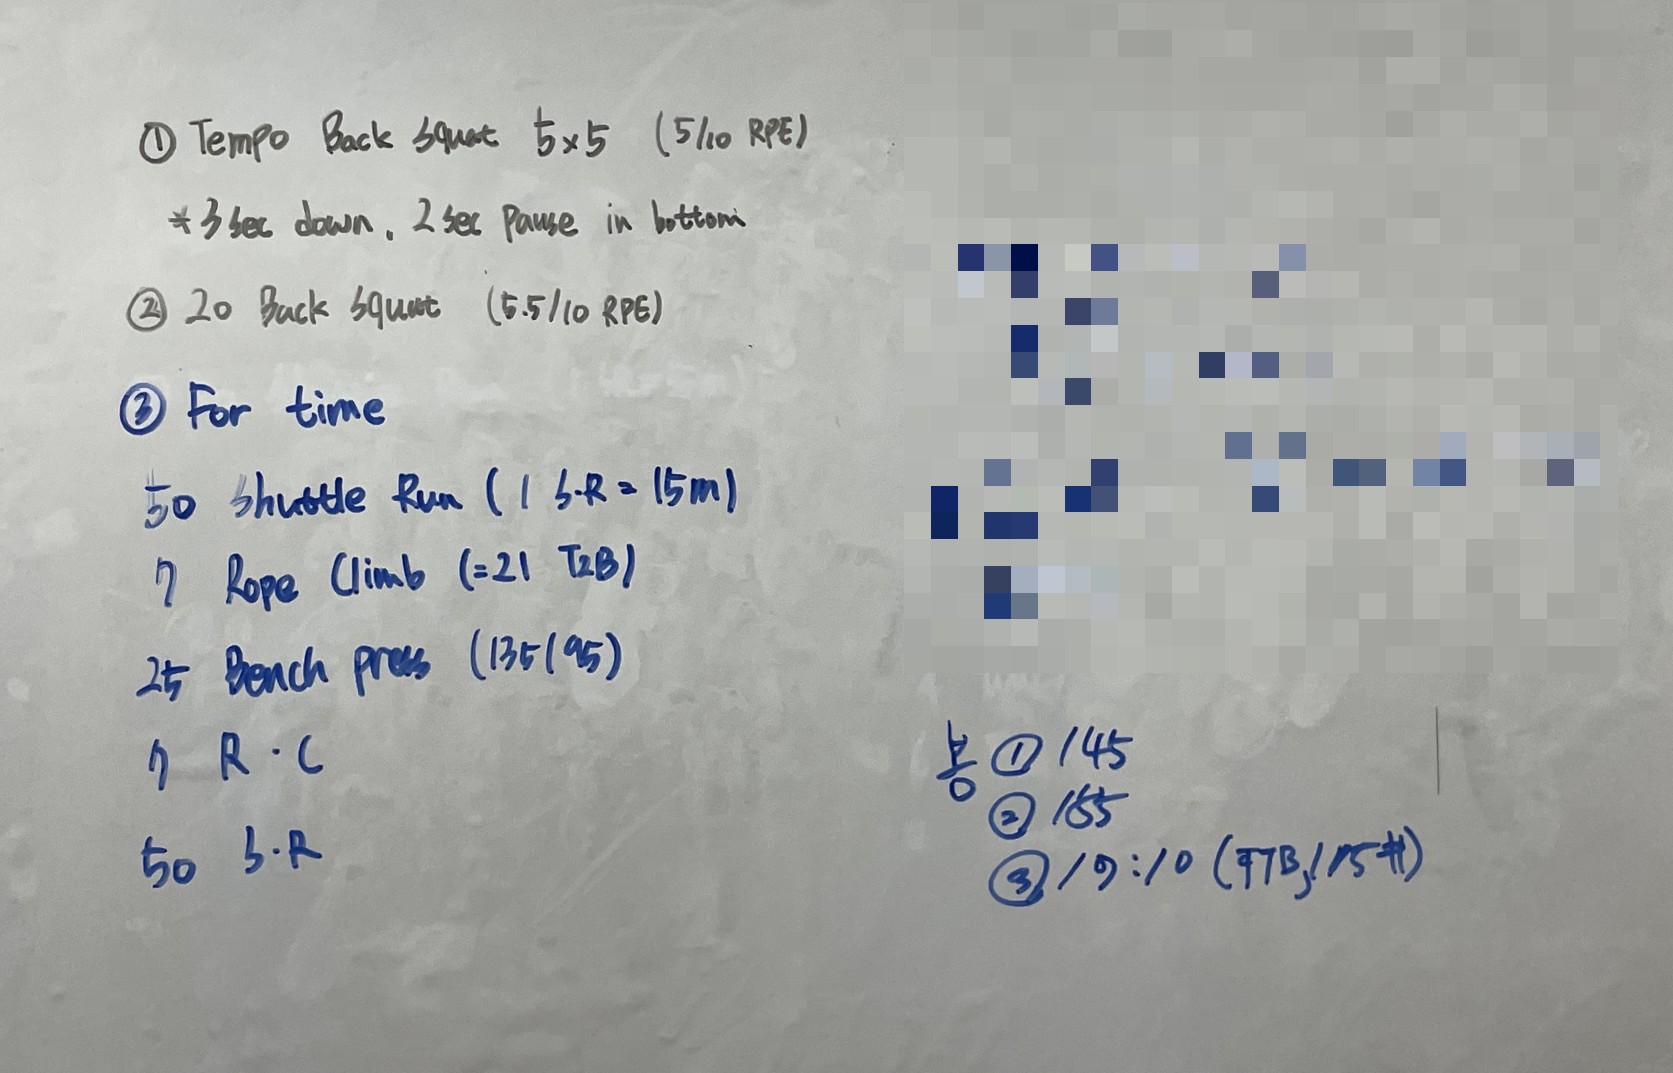 ① Tempo Back Squat 5x5 (5/10 RPE)
*3 sec down, 2 sec Pause in bottom
② 20 Back Squat (5.5/10 RPE)
③ For time
50 Shuttle Run (1 S·R = 15m)
7 Rope Climb (=21 T2B)
25 Bench press (135/95)
7 R·C
50 S·R
봉 ① 145
② 155
③ 19:10 (TTB, 115#)